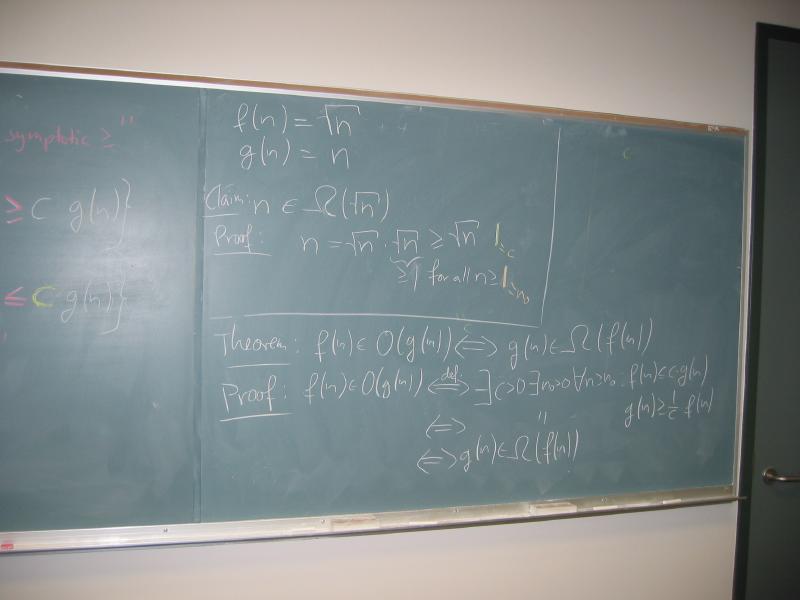 symptotic ≥"
≥ C g(n)}
≤ C g(n)}
f(n) = √n
g(n) = n
Claim: n ∈ Ω(√n)
Proof: n = √n · √n ≥ √n 1 = c
≥1 for all n ≥ 1 = n₀
Theorem: f(n) ∈ O(g(n)) ⟺ g(n) ∈ Ω(f(n))
Proof: f(n) ∈ O(g(n)) ⟺ def. ∃ c>0 ∃ n₀>0 ∀ n>n₀ : f(n) ≤ c·g(n)
⟺ " g(n) ≥ 1/c f(n)
⟺ g(n) ∈ Ω(f(n))